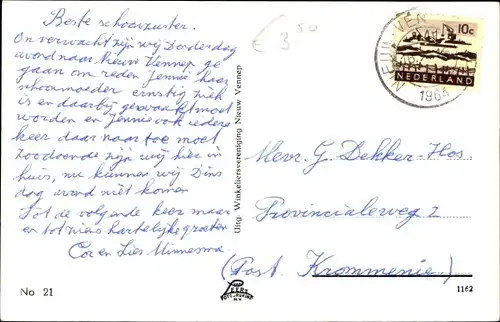 Beste schoonzuster.
Onverwacht zijn wij Donderdag
avond naar Nieuw Vennep ge
gaan om reden Jennie haar
schoonmoeder ernstig ziek
is en daarbij gewaakt moet
worden en Jennie ook iedere
keer daar naar toe moet
Zoodoende zijn wij hier in
huis, nu kunnen wij Dins
dag avond niet komen
Tot de volgende keer maar
en tot ziens hartelijke groeten
Cor en Lies Minnesma.
No 21
€ 3 50
Uitg. Winkeliersvereniging Nieuw Vennep
KERS
FOTO-DRUKKERIJ
NIEUW-VEN
1964
10c
NEDERLAND
Mevr. G. Dekker-Hos.
Provincialeweg 2
(Post. Krommenie)
1162